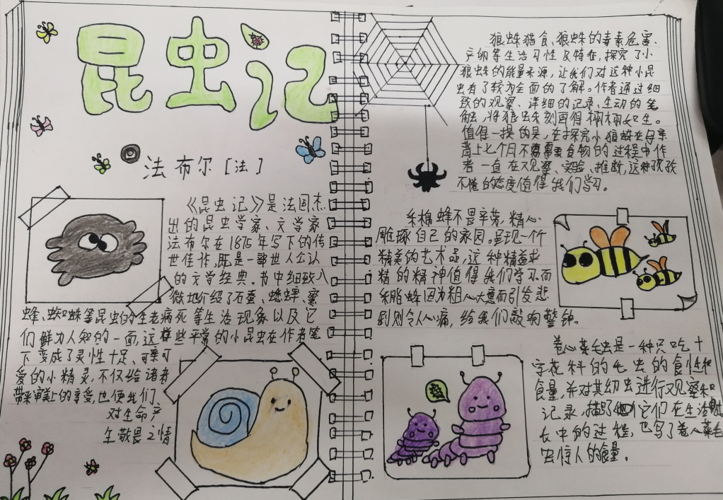 昆虫记
法布尔 [法]
《昆虫记》是法国杰
出的昆虫学家、文学家
法布尔在1875年写下的传
世佳作,既是一部世人公认
的文学经典,书中细致入
微地介绍了石蚕、蟋蟀、蜜
蜂、蜘蛛等昆虫的生老病死等生活现象以及它
们鲜为人知的一面,这样些平常的小昆虫在作者笔
下变成了灵性十足、可
爱的小精灵,不仅给读者
带来审美上的享受,也使我们
对生命产
生敬畏之情
狼蛛猎食、狼蛛的毒素危害、
产卵等生活习性及特性,探究了小
狼蛛的能量来源,让我们对这种小昆
虫有了较为全面的了解。作者通过细
致的观察、详细的记录、生动的笔
触,将狼虫刻画得栩栩如生。
值得一提的是,在探究小狼蛛在母亲
背上七个月不需要食物的过程中作
者一直在观察、实验、推敲,这种孜孜
不倦的态度值得我们学习。
蜂不畏辛劳,精心
雕琢自己的家园,呈现一个
精美的艺术品,这种精益求
精的精神值得我们学习而
蜂因为粗心大意而引发悲
剧则令人心痛,给我们敲响警钟。
卷心菜毛虫是一种只吃十
字花科的毛虫的食性和
食量,并对其幼虫进行了观察和
记录,描写了它们在生活成
长中的过程,也写了卷心菜毛
虫惊人的食量。